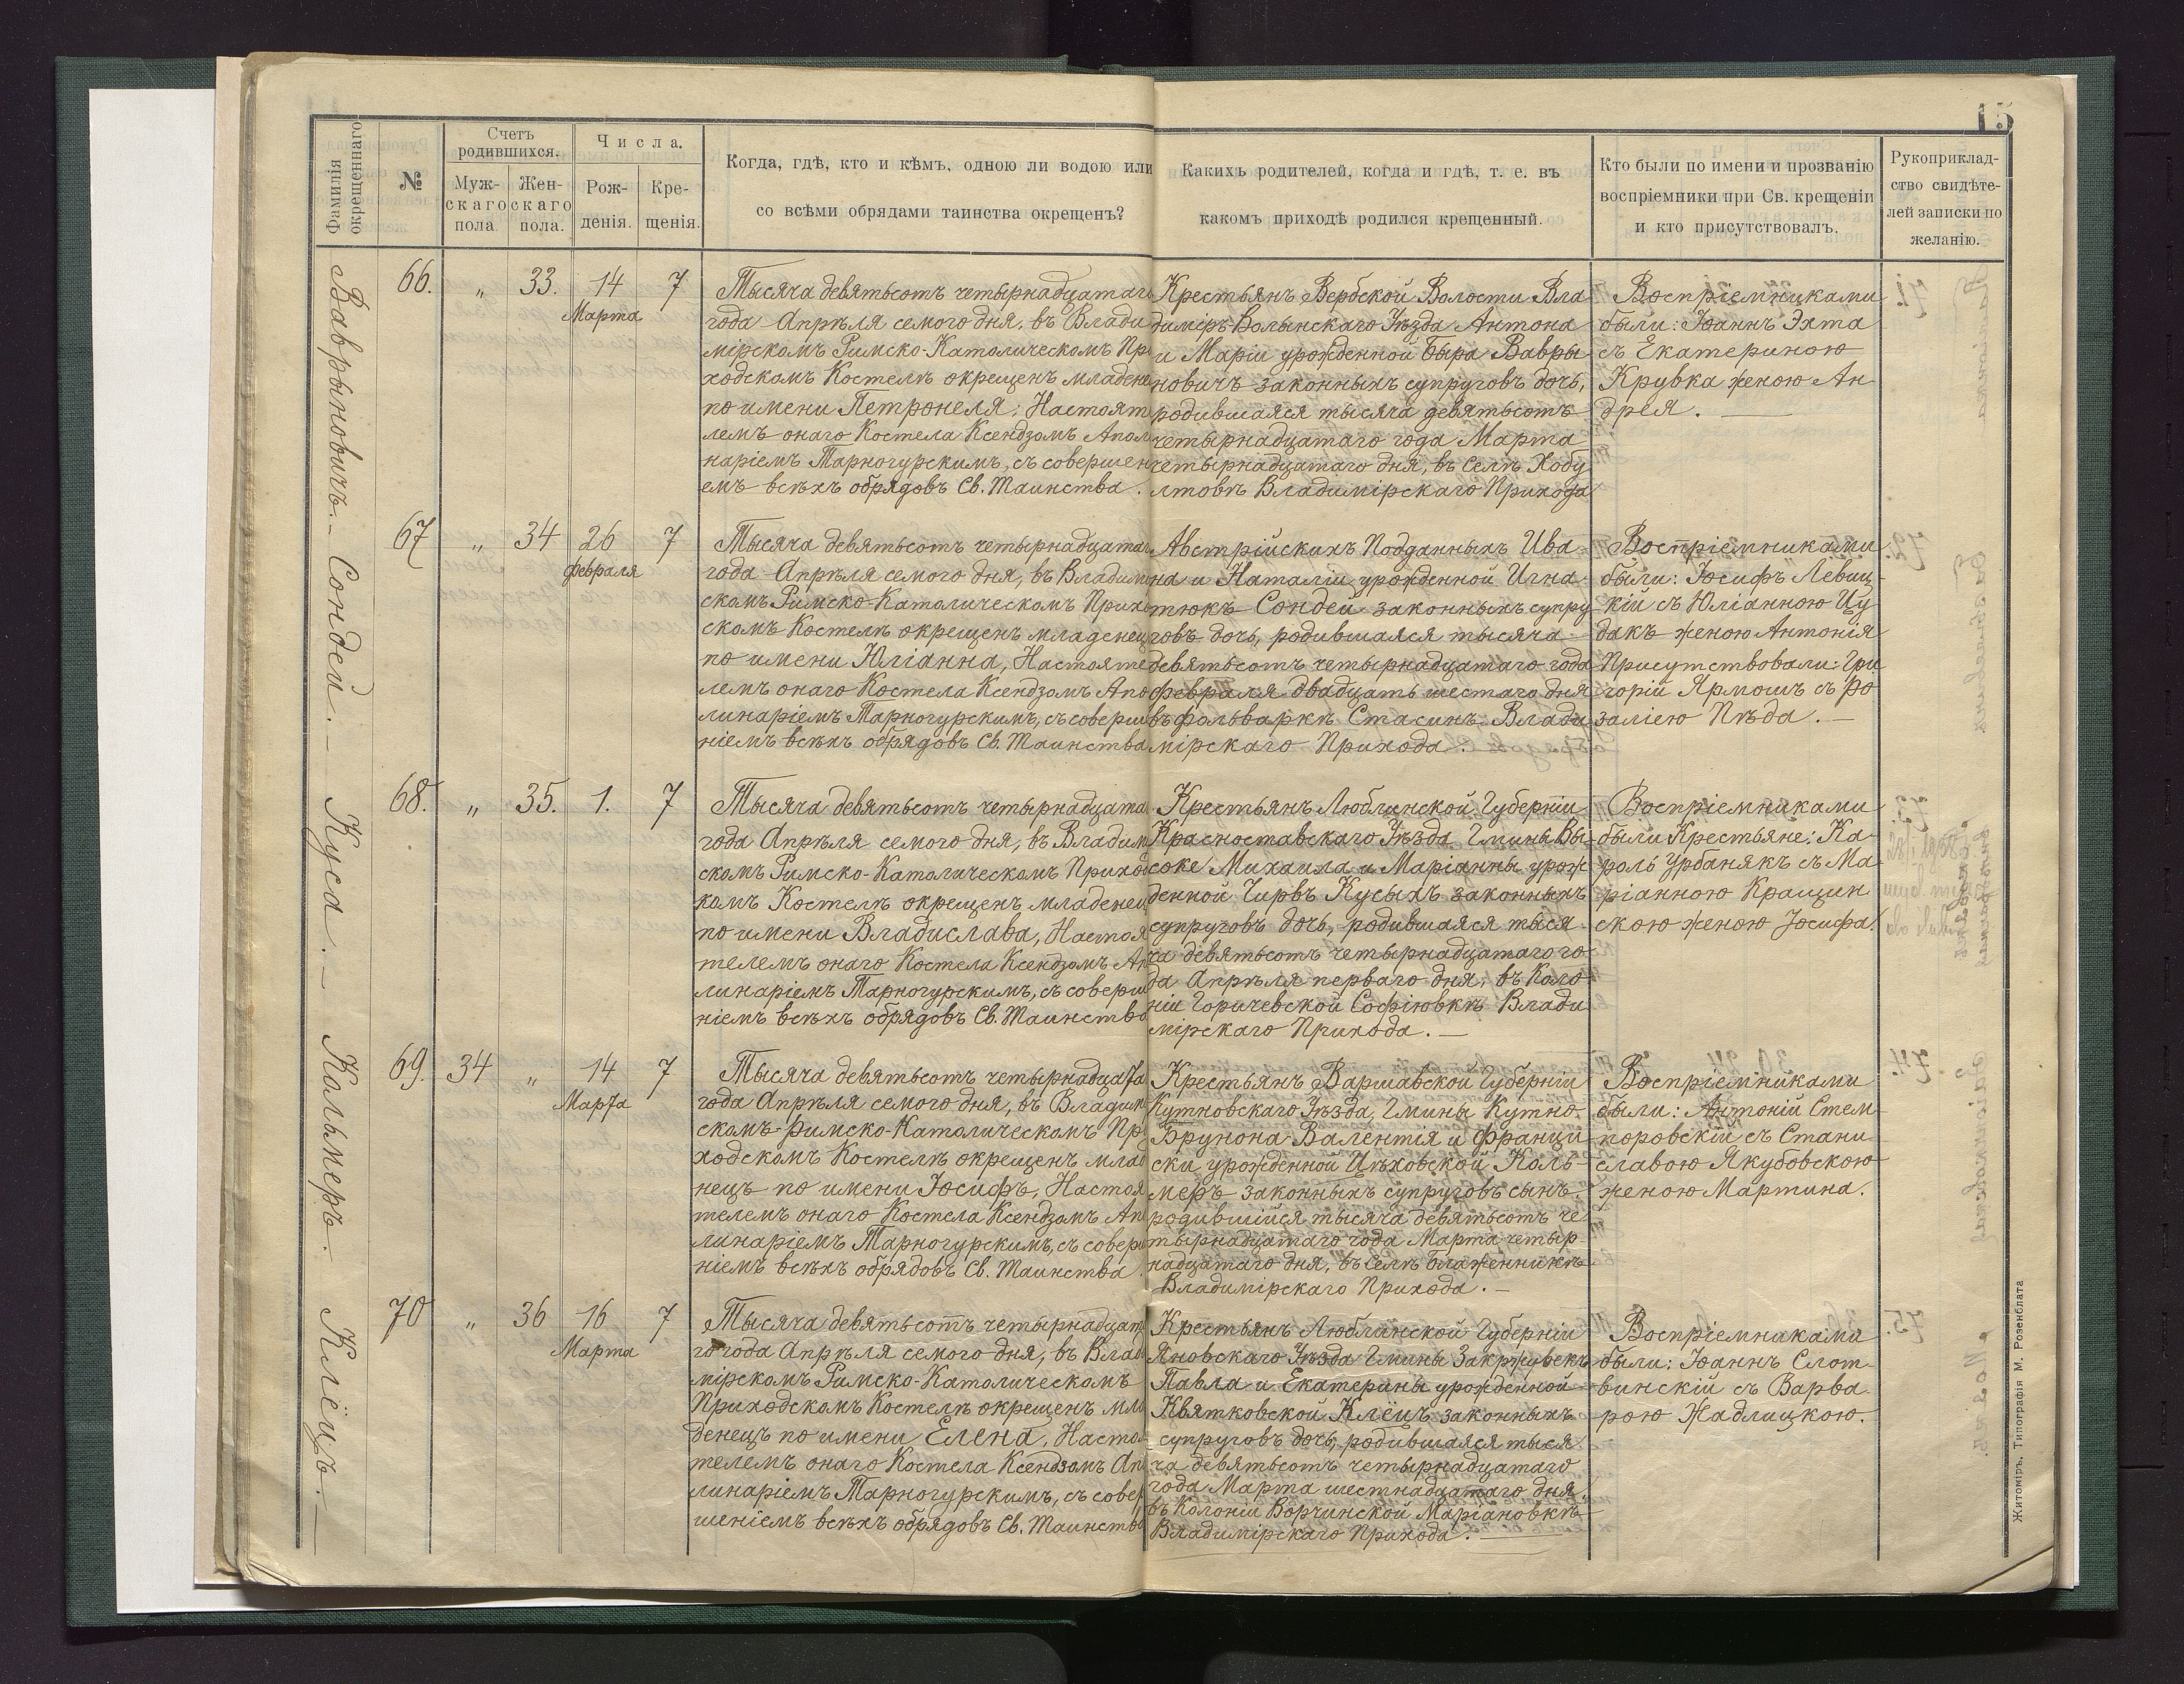 15
Фамилія окрещеннаго
№
Счетъ родившихся.
Муж-
скаго
пола
Жен-
скаго
пола.
Числа.
Рож-
денія.
Кре-
щенія.
Когда, гдѣ, кто и кѣмъ, одною ли водою или
со всѣми обрядами таинства окрещенъ?
Какихъ родителей, когда и гдѣ, т. е. въ
какомъ приходѣ родился крещенный.
Кто были по имени и прозванію
воспріемники при Св. крещеніи
и кто присутствовалъ.
Рукоприклад-
ство свидѣте-
лей записки по
желанію.
Ваврыновичъ.
66. " 33. 14 7
Марта
Тысяча девятьсотъ четырнадцатаго
года Апрѣля семого дня, въ Влади
мірскомъ Римско-Католическомъ При
ходскомъ Костелѣ окрещенъ младене
по имени Петронеля, Настояте
лемъ онаго Костела Ксендзомъ Апол
наріемъ Тарногурскимъ, съ совершен
емъ всѣхъ обрядовъ Св. Таинства.
Крестьянъ Вербской Волости Вла
диміръ Волынскаго Уѣзда Антона
и Маріи урожденной Быра Вавры
новичъ законныхъ супруговъ дочь,
родившаяся тысяча девятьсотъ
четырнадцатаго года Марта
четырнадцатаго дня, въ Селѣ Хобу
лтовѣ Владимірскаго Прихода
Воспріемниками
были: Іоаннъ Эхта
съ Екатериною
Крувка женою Ан
дрея.
Сондей.
67 " 34 26 7
февраля
Тысяча девятьсотъ четырнадцатаг
года Апрѣля семого дня, въ Владими
скомъ Римско-Католическомъ Прихо
скомъ Костелѣ окрещенъ младенец
по имени Юліанна, Настояте
лемъ онаго Костела Ксендзомъ Апо
линаріемъ Тарногурскимъ, съ соверше
ніемъ всѣхъ обрядовъ Св. Таинства
Австрійскихъ Подданныхъ Ива
на и Наталіи урожденной Игна
тюкъ Сондей законныхъ супру
говъ дочь, родившаяся тысяча
девятьсотъ четырнадцатаго года
февраля двадцать шестаго дня
въ фольваркѣ Стасинъ Влади
мірскаго Прихода.
Воспріемниками
были: Іосифъ Левиц
кій съ Юліанною Цу
дакъ женою Антонія
Присутствовали: Гри
горій Ярмошъ съ Ро
заліею Пѣда.
Куса.
68. " 35. 1. 7
Тысяча девятьсотъ четырнадцата
года Апрѣля семого дня, въ Владим
скомъ Римско-Католическомъ Приход
комъ Костелѣ окрещенъ младенец
по имени Владислава, Настоя
телемъ онаго Костела Ксендзомъ Ап
линаріемъ Тарногурскимъ, съ соверше
ніемъ всѣхъ обрядовъ Св. Таинство
Крестьянъ Люблинской Губерніи
Красноставскаго Уѣзда Гмины Вы
соке Михаила и Маріанны урож
денной Чирвъ Кусыхъ законныхъ
супруговъ дочь, родившаяся тыся
ча девятьсотъ четырнадцатаго го
да Апрѣля перваго дня, въ Коло
ніи Горичевской Софіювкѣ Влади
мірскаго Прихода.
Воспріемниками
были Крестьяне: Ка-
роль Урбанякъ съ Ма
ріанною Кращин
скою женою Іосифа.
Кольмеръ.
69. 34 " 14 7
Марта
Тысяча девятьсотъ четырнадцата
года Апрѣля семого дня, въ Владим
скомъ Римско-Католическомъ Пр
ходскомъ Костелѣ окрещенъ млад
нецъ по имени Іосифъ, Настоя
телемъ онаго Костела Ксендзомъ Ап
линаріемъ Тарногурскимъ, съ соверш
ніемъ всѣхъ обрядовъ Св. Таинства
Крестьянъ Варшавской Губерніи
Кутновскаго Уѣзда, Гмины Кутно
Брунона Валентія и Франци
ски урожденной Цѣховской Коль-
меръ законныхъ супруговъ сынъ,
родившійся тысяча девятьсотъ че
тырнадцатаго года Марта четыр
надцатаго дня, въ Селѣ Блаженникъ
Владимірскаго Прихода.
Воспріемниками
были: Антоній Стем
поровскій съ Стани
славою Якубовскою
женою Мартина.
Клёцъ.
70 " 36 16 7
Марта
Тысяча девятьсотъ четырнадцат
го года Апрѣля семого дня, въ Влад
мірскомъ Римско-Католическомъ
Приходскомъ Костелѣ окрещенъ мла
денецъ по имени Елена, Настоя
телемъ онаго Костела Ксендзомъ Ап
линаріемъ Тарногурскимъ, съ совер
шеніемъ всѣхъ обрядовъ Св. Таинство
Крестьянъ Люблинской Губерніи
Яновскаго Уѣзда Гмины Закржувекъ
Павла и Екатерины урожденной
Квятковской Клёцъ законныхъ
супруговъ дочь, родившаяся тыся
ча девятьсотъ четырнадцатаго
года Марта шестнадцатаго дня,
въ Колоніи Ворчинской Маріановкѣ
Владимірскаго Прихода.
Воспріемниками
были: Іоаннъ Слот-
винскій съ Варва
рою Жадлицкою.
Житоміръ, Типографія М. Розенблата